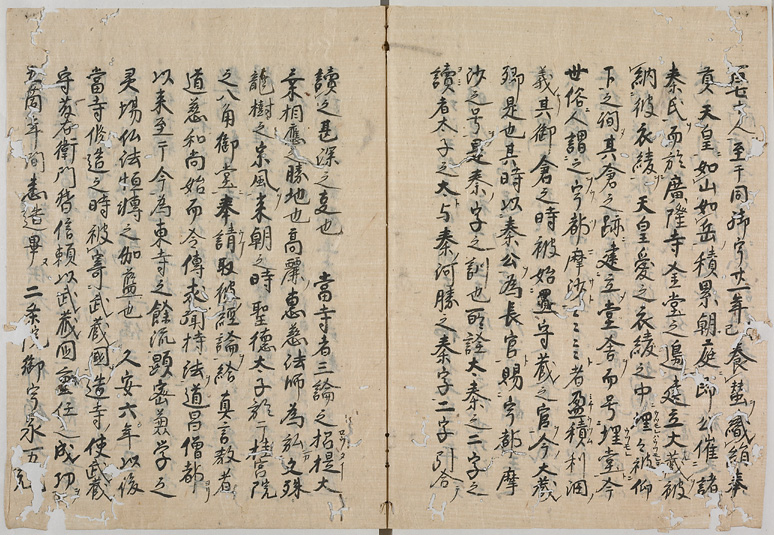 百七十人至于同御宇十一年己養蚕織絹奉
貢 天皇如山如岳積累朝庭即公催諸
秦氏而於廣隆寺金堂之邊建立大蔵被
納彼衣綾 天皇愛之衣綾之中埋々被仰
下之間其倉之跡建立堂舎而号埋堂今
世俗人謂之宇都摩沙々々々者盈積利潤
義其御倉之時被始置守蔵之官今大蔵
卿是也其時以秦公為長官賜宇都摩
沙之号是秦字之訓也所詮大秦之二字之
讀者太子之太与秦河勝之秦字二字引合
讀之甚深之支也 當寺者三論之招提大
乗相應之勝地也高麗惠慈法師為弘文殊
龍樹之宗風来朝之時聖德太子於桂宮院
之八角御堂奉請取彼經論給真言教者
道慈和尚始而令傳持法道昌僧都
以来至于今為東寺之餘流顕密兼学之
灵場仏法恒轉之伽藍也 久安六年以後
當寺修造之時被寄武蔵國造寺使武蔵
守藤右衛門督信頼以武蔵國重任之成功
五箇年間悉造畢 二条院御宇永